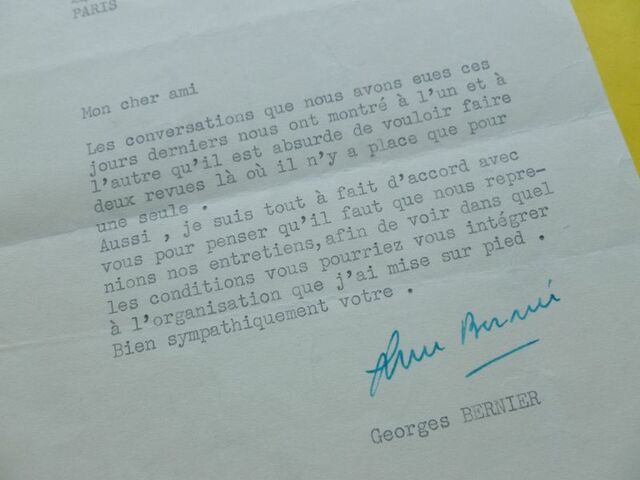 PARIS
Mon cher ami
Les conversations que nous avons eues ces
jours derniers nous ont montré à l'un et à
l'autre qu'il est absurde de vouloir faire
deux revues là où il n'y a place que pour
une seule .
Aussi , je suis tout à fait d'accord avec
vous pour penser qu'il faut que nous repre-
nions nos entretiens, afin de voir dans quel
les conditions vous pourriez vous intégrer
à l'organisation que j'ai mise sur pied .
Bien sympathiquement votre .
Bernier
Georges BERNIER